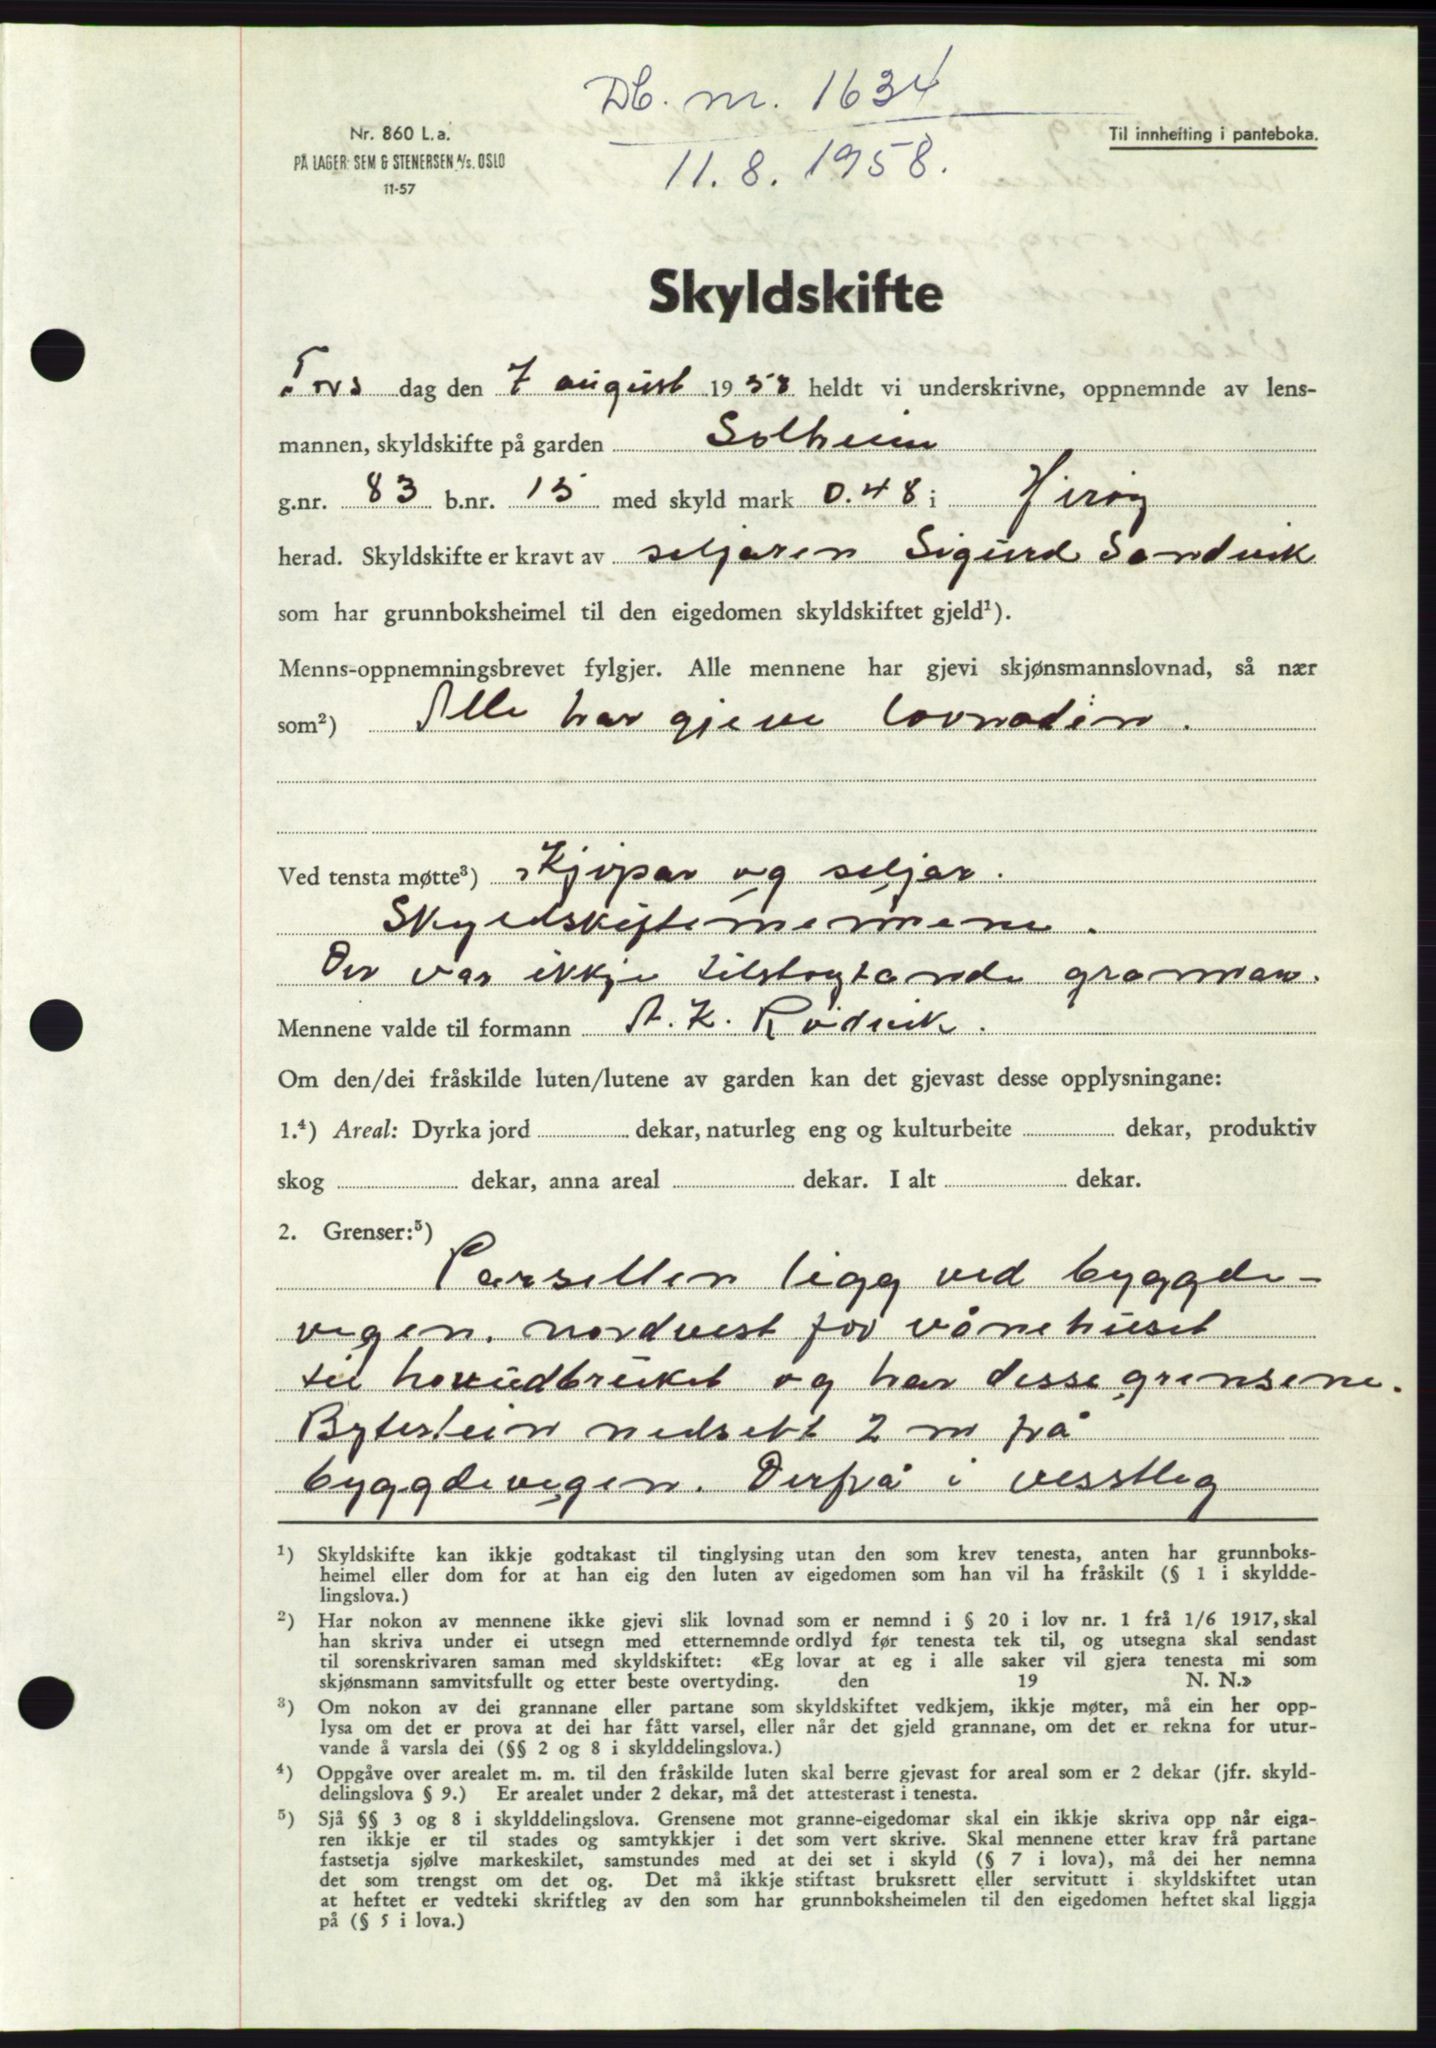 Db. nr. 1634
11.8.1958.
Nr. 860 L.a.
PÅ LAGER: SEM & STENERSEN A/S. OSLO
11-57
Til innhefting i panteboka.
Skyldskifte
Tors dag den 7 august 1958 heldt vi underskrivne, oppnemnde av lens-
mannen, skyldskifte på garden Solheim
g.nr. 83 b.nr. 15 med skyld mark 0.48 i Herøy
herad. Skyldskifte er kravt av seljaren Sigurd Sandvik
som har grunnboksheimel til den eigedomen skyldskiftet gjeld¹).
Menns-oppnemningsbrevet fylgjer. Alle mennene har gjevi skjønsmannslovnad, så nær
som²) Alle har gjeve lovnaden.
Ved tensta møtte³) Kjøpar og seljar.
Skyldskiftemennene.
Der var ikkje tilstøytande grannar.
Mennene valde til formann A. K. Rødvik.
Om den/dei fråskilde luten/lutene av garden kan det gjevast desse opplysningane:
1.⁴) Areal: Dyrka jord dekar, naturleg eng og kulturbeite dekar, produktiv
skog dekar, anna areal dekar. I alt dekar.
2. Grenser:⁵)
Parsellen ligg ved bygde-
vegen. nordvest for vånehuset
til hovudbruket og har desse grensene.
Bytestein nedsett 2 m frå
byggdevegen. Derfrå i vesstleg
¹) Skyldskifte kan ikkje godtakast til tinglysing utan den som krev tenesta, anten har grunnboks-
heimel eller dom for at han eig den luten av eigedomen som han vil ha fråskilt (§ 1 i skyldde-
lingslova.)
²) Har nokon av mennene ikke gjevi slik lovnad som er nemnd i § 20 i lov nr. 1 frå 1/6 1917, skal
han skriva under ei utsegn med etternemnde ordlyd før tenesta tek til, og utsegna skal sendast
til sorenskrivaren saman med skyldskiftet: «Eg lovar at eg i alle saker vil gjera tenesta mi som
skjønsmann samvitsfullt og etter beste overtyding. den 19 N. N.»
³) Om nokon av dei grannane eller partane som skyldskiftet vedkjem, ikkje møter, må ein her opp-
lysa om det er prova at dei har fått varsel, eller når det gjeld grannane, om det er rekna for utur-
vande å varsla dei (§§ 2 og 8 i skylddelingslova.)
⁴) Oppgåve over arealet m. m. til den fråskilde luten skal berre gjevast for areal som er 2 dekar (jfr. skyld-
delingslova § 9.) Er arealet under 2 dekar, må det attesterast i tenesta.
⁵) Sjå §§ 3 og 8 i skylddelingslova. Grensene mot granne-eigedomar skal ein ikkje skriva opp når eiga-
ren ikkje er til stades og samtykkjer i det som vert skrive. Skal mennene etter krav frå partane
fastsetja sjølve markeskilet, samstundes med at dei set i skyld (§ 7 i lova), må dei her nemna
det som trengst om det og. Det må ikkje stiftast bruksrett eller servitutt i skyldskiftet utan
at heftet er vedteki skriftleg av den som har grunnboksheimelen til den eigedomen heftet skal liggja
på (§ 5 i lova.)